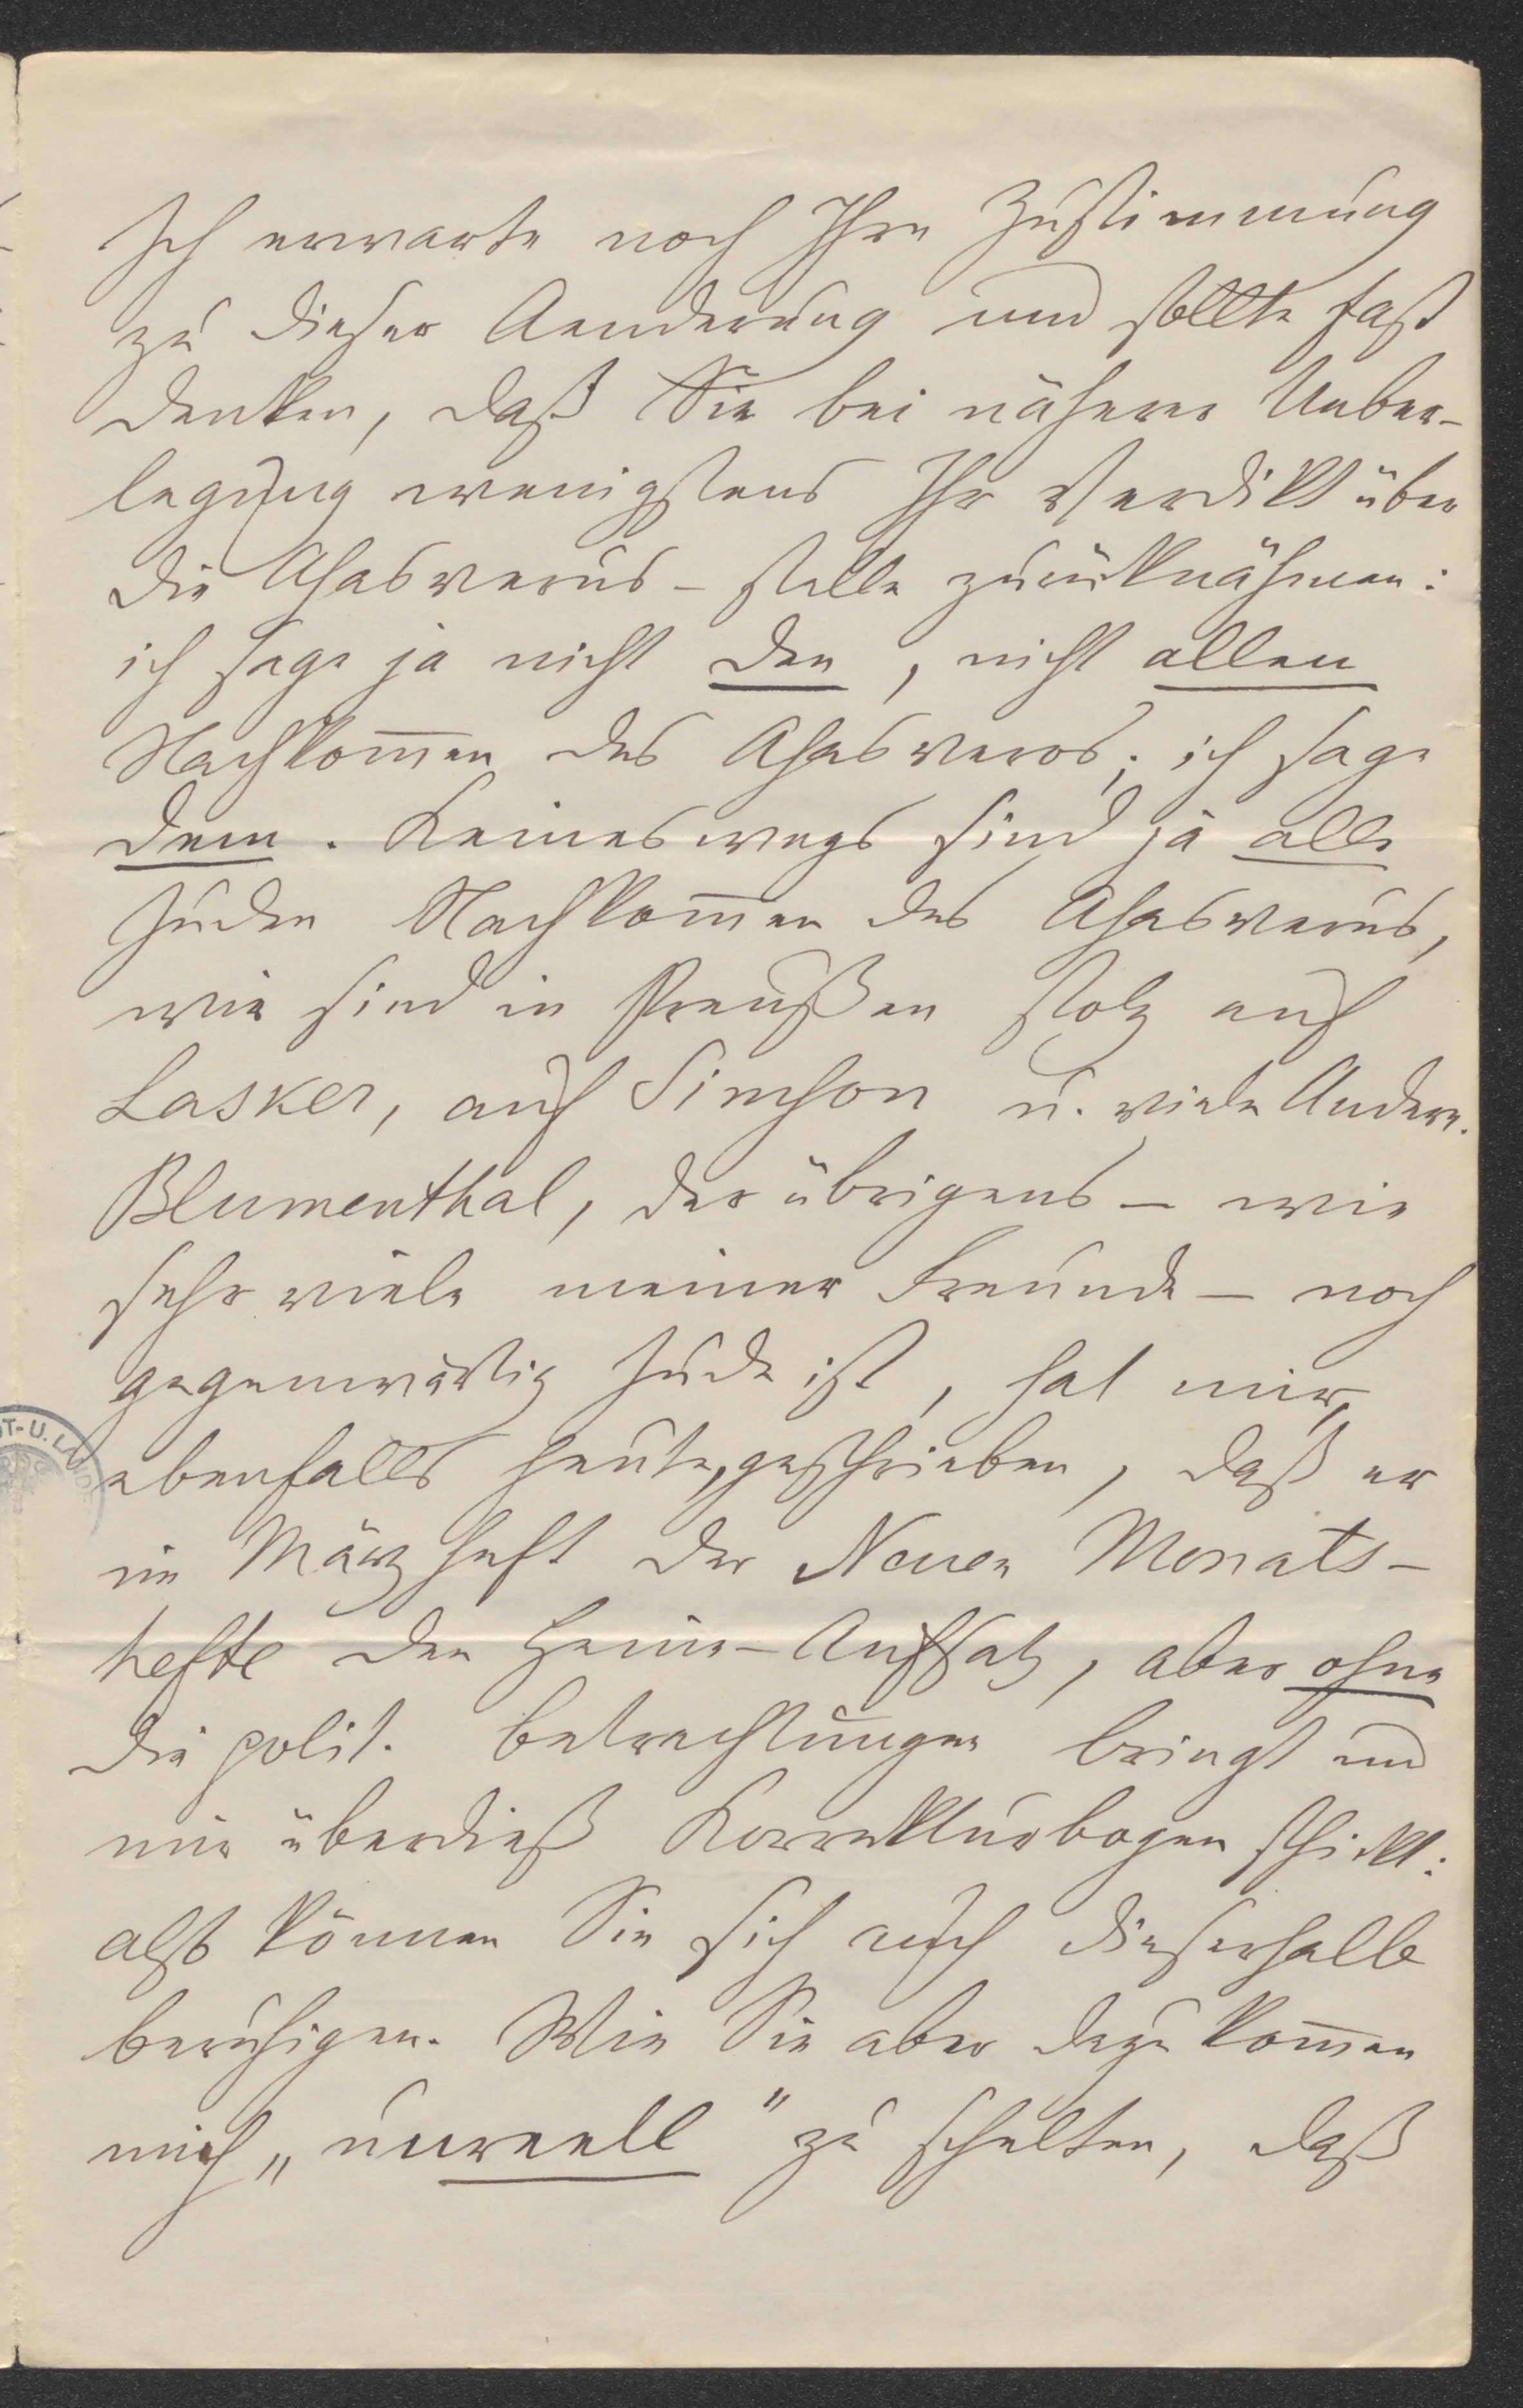 Ich erwarte noch Ihre Zustimmung
zu dieser Aenderung und sollte fast
denken, daß Sie bei näherer Ueber-
legung wenigstens Ihr Verdikt über
die Ahasverus-stelle zurücknähmen:
ich sage ja nicht den, nicht allen
Nachkom̅en des Ahasveros; ich sage
dem. Keineswegs sind ja alle
Juden Nachkom̅en des Ahasverus,
wir sind in Preußen stolz auf
Lasker, auf Simson u. viele Andere.
Blumenthal, der übrigens – wie
sehr viele meiner Freunde – noch
gegenwärtig Jude ist, hat mir,
ebenfalls heute, geschrieben, daß er
im Märzheft der Neuen Monats-
hefte den Heine-Aufsatz, aber ohne
die polit. Betrachtungen bringt und
mir überdieß Korrekturbogen schickt:
also können Sie sich auch dieserhalb
beruhigen. Wie Sie aber dazu kom̅en
mich „unreell" zu schelten, daß